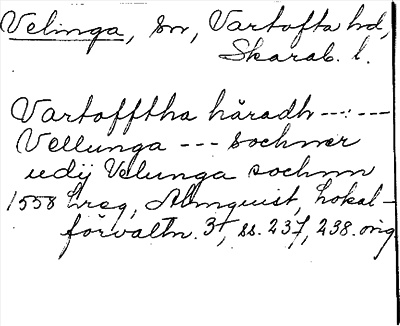 Velinga, sn, Vartofta hd,
Skarab. l.
Vartofftha häradh --- ---
Vellunga --- sochner
udij Velunga sochnn
1558 Lreg, Almquist, Lokal-
förvaltn. 3, ss. 237, 238. orig